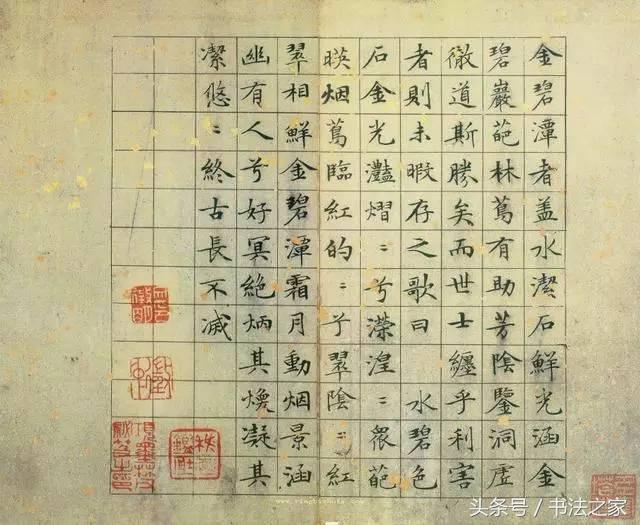 金碧潭者盖水潔石鮮光涵金
碧巖葩林蔦有助芳陰鑒洞虛
徹道斯勝矣而世士纏乎利害
者則未暇存之歌曰 水碧色
石金光灩熠〻兮濴湟〻衆葩
暎烟蔦臨紅的〻兮翠陰〻紅
翠相鮮金碧潭霜月動烟景涵
幽有人兮好冥絶炳其煥凝其
潔悠〻終古長不滅
头条号 / 书法之家